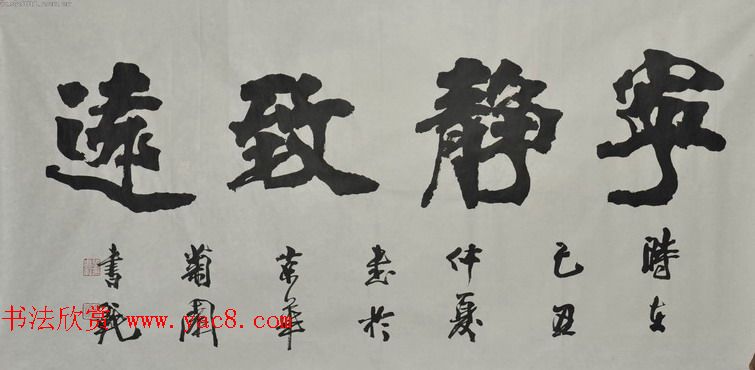 寧靜致遠
時在
己丑
仲夏
書於
京華
菊園
書
书法欣赏 www.yac8.com